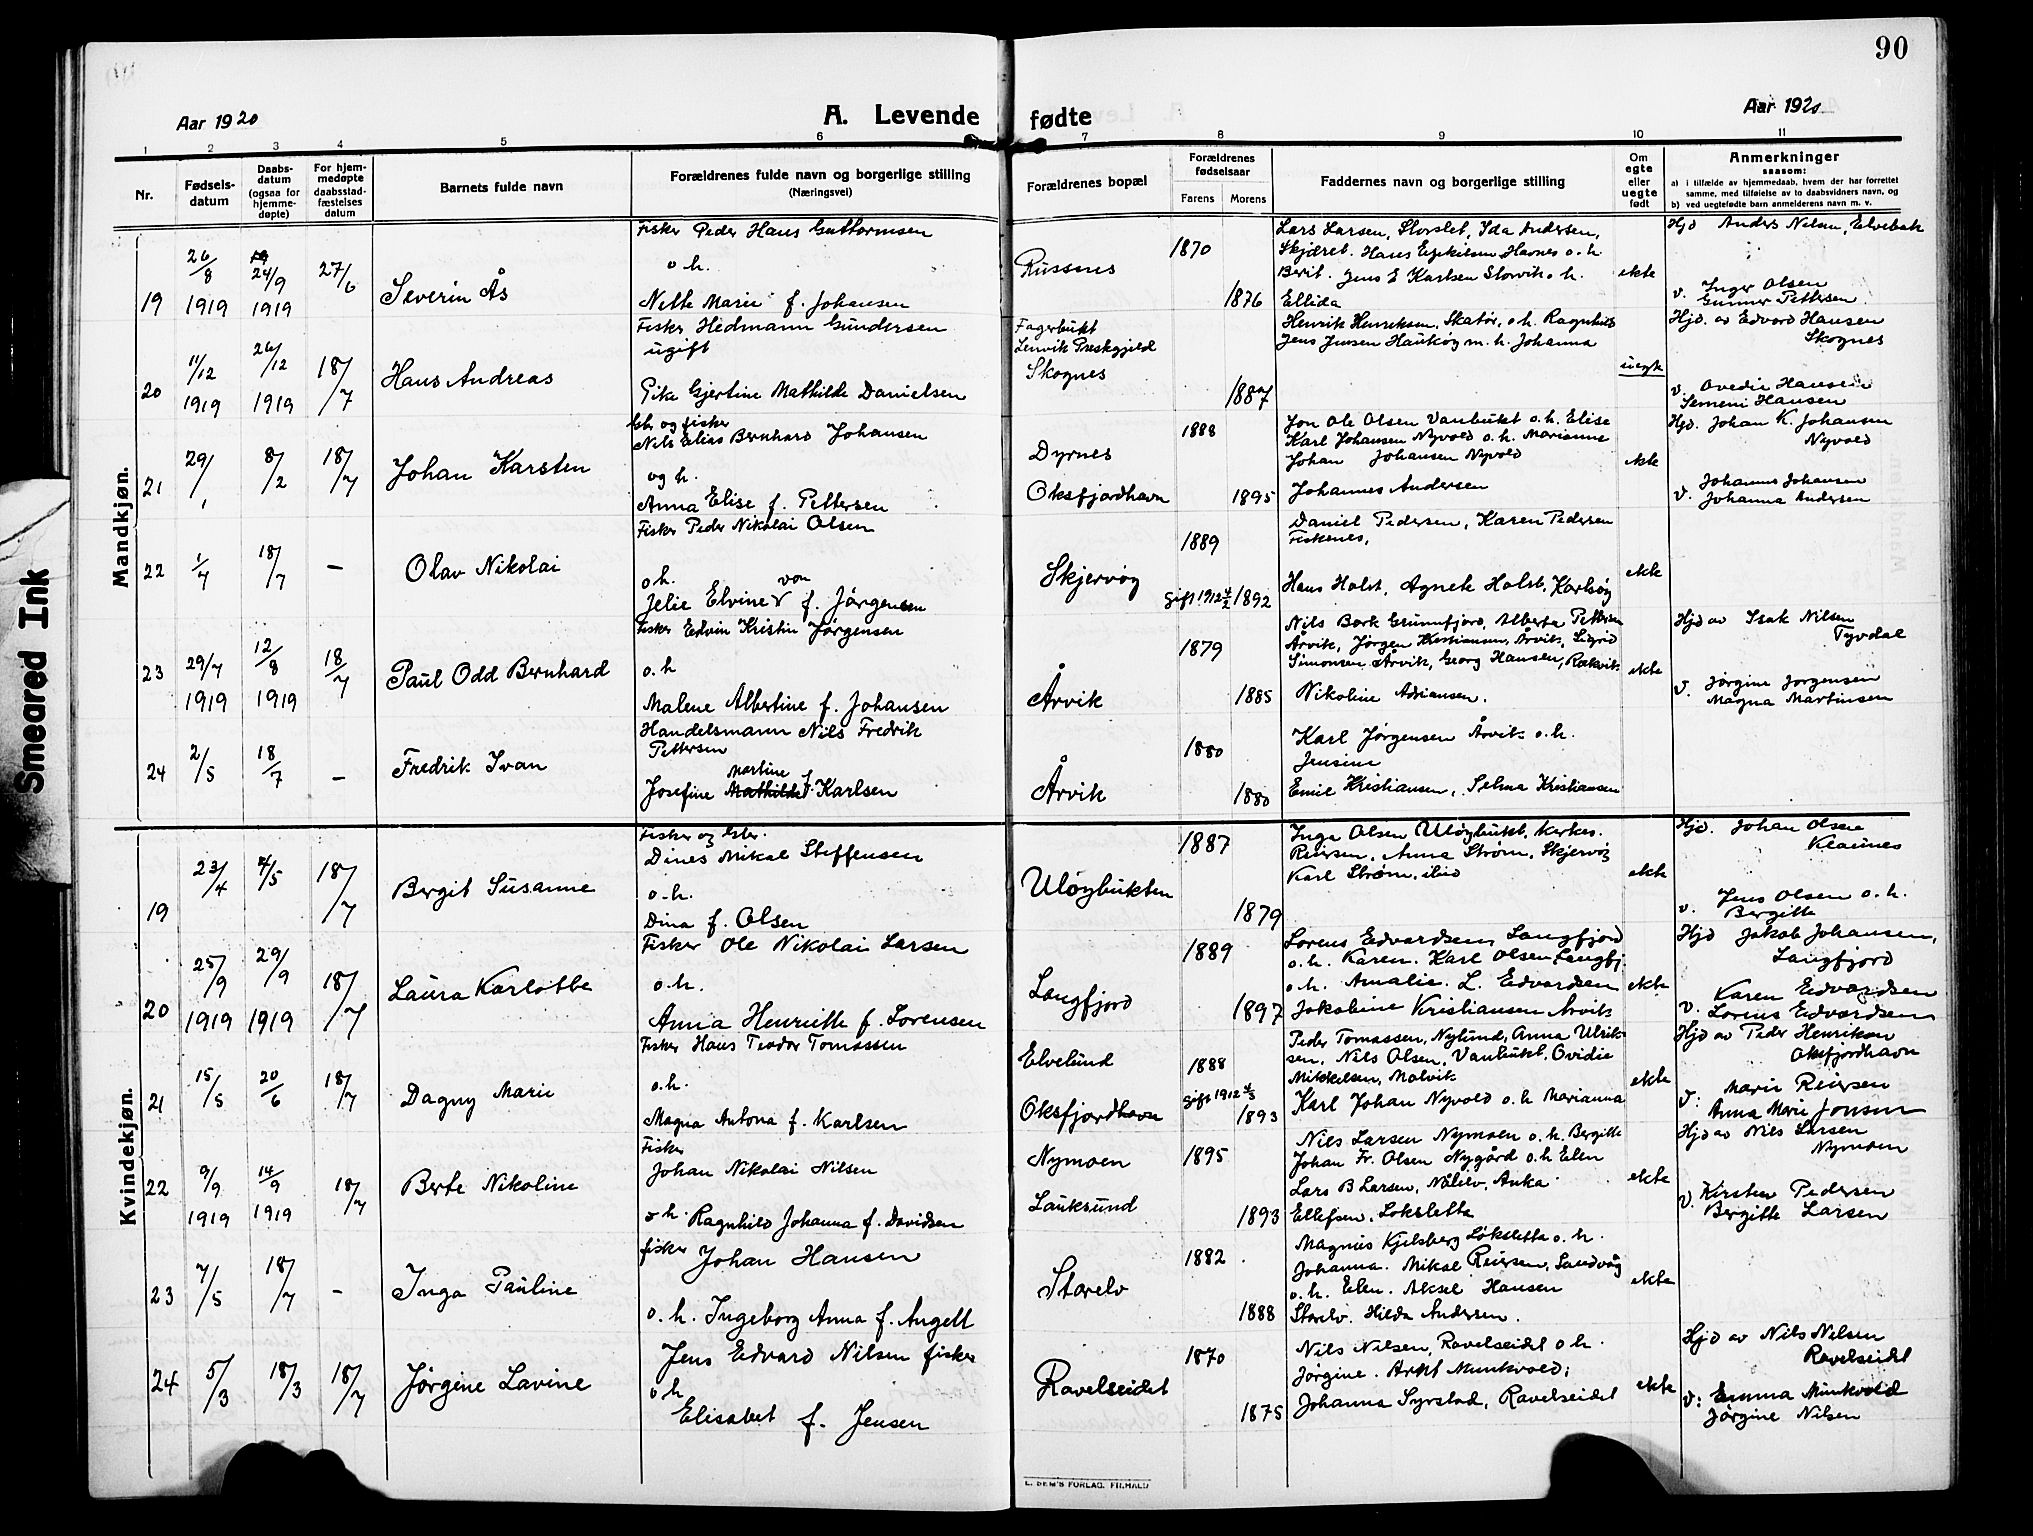 90
Aar 1920
A. Levende fødte
Aar 1920
1 2 3 4 5 6 7 8 9 10 11
Nr.
Fødsels-
datum
Daabs-
datum
(ogsaa for
hjemme-
døpte)
For hjem-
medøpte
daabsstad-
fæstelses
datum
Barnets fulde navn
Forældrenes fulde navn og borgerlige stilling
(Næringsvei)
Forældrenes bopæl
Forældrenes
fødselsaar
Farens Morens
Faddernes navn og borgerlige stilling
Om
egte
eller
uegte
født
Anmerkninger
saasom:
a) i tilfælde av hjemmedaab, hvem der har forrettet
samme, med tilføielse av to daabsvidners navn, og
b) ved uegtefødte barn anmelderens navn m. v.
Mandkjøn.
19 26/8 1919 24/9 1919 27/6 Severin Ås
Fisker Peder Hans Guttormsen
o h.
Nette Marie f. Johansen
Russenes
1870
1876
Lars Larsen, Storslet, Ida Andersen,
Skjæret. Hans Ezekielsen Havnes o. h.
Berit. Jens E Karlsen Storvik o. h.
Ellida
ekte
Hjd Anders Nelsen, Elvebak
v. Inger Olsen
Gunner Pettersen
20 11/12 1919 26/12 1919 18/7 Hans Andreas
Fisker Hedmann Gundersen
ugift
Pike Gjertine Mathilde Danielsen
Fagerbukt
Lenvik Prestegjeld
Skognes
1887
Henrik Henriksen, Skatør, o.h. Ragnhild
Jens Jensen Haukøy m. h. Johanna
uegte
Hjd. av Edvard Hansen
Skognes
v. Ovedie Hansen
Semeni Hansen
21 29/1 8/2 18/7 Johan Karsten
Gbr og fisker
Nils Elias Bernhard Johansen
og h.
Anna Elise f. Pettersen
Dyrnes
Oksfjordhavn
1888
1895
Jon Ole Olsen Vanbukt o. h. Elise
Karl Johansen Nyvold o. h. Marianne
Johan Johansen Nyvold
Johannes Andersen
ekte
Hjd. Johan K. Johansen
Nyvold
v. Johannes Johansen
Johanna Andersen
22 1/7 18/7 – Olav Nikolai
Fisker Peder Nikolai Olsen
o h. von
Jelie Elvine f. Jørgensen
Skjervøy
1889
Gift 1912 4/2 1892
Daniel Pedersen, Karen Pedersen
Fiskenes,
Hans Holst, Agnete Holst, Karlsøy
ekte
23 29/7 1919 12/8 1919 18/7 Paul Odd Bernhard
Fisker Edvin Kristin Jørgensen
o. h
Malene Albertine f. Johansen
Årvik
1879
1885
Nils Bork Grunnfjord, Alberta Pettersen
Årvik, Jørgen Kristiansen, Årvik, Sigrid
Simonsen Årvik, Georg Hansen, Rakvik
Nikoline Adriansen.
ekte
Hjd av Isak Nilsen
Tyvdal
v. Jørgine Jorgensen
Magna Martinsen
24 2/5 18/7 – Fredrik Ivan
Handelsmann Nils Fredrik
Pettersen
Martine
Josefine Mathilde f Karlsen
Årvik
1880
1880
Karl Jørgensen Årvik o. h.
Jensine
Emil Kristiansen, Selma Kristiansen
Kvindekjøn.
19 23/4 4/5 18/7 Bergit Susanne
Fisker og Gbr.
Dines Mikal Steffensen
o. h.
Dina f. Olsen
Uløybukten
1887
1879
Inga Olsen Uløybukt, Kerkes.
Reiersen, Anna Strøm, Skjervøy
Karl Strøm, ibid
ekte
Hjd. Johan Olsen
Klauvnes
v. Jens Olsen o. h.
Bergitte
20 25/9 1919 29/9 1919 18/7 Laura Karlotte
Fisker Ole Nikolai Larsen
o. h.
Anna Henriette f. Sorensen
Langfjord
1889
1897
Lorens Edvardsen, Langfjord
o. h. Karen. Karl Olsen, Langfj
o. h. Amalie. L. Edvardsen
Jakobine Kristiansen Arvik
ekte
Hjd Jakob Johansen,
Langfjord
v. Karen Edvardsen
Lorens Edvardsen
21 15/5 20/6 18/7 Dagny Marie
Fisker Hans Teodor Tomassen
o. h.
Magna Antona f. Karlsen
Elvelund
Oksfjordhavn
1888
Gift 1912 4/3
1893
Peder Tomassen, Nylund, Anna Ulrik-
sen, Nils Olsen, Vanbukt, Ovidie
Mikkelsen, Malvik
Karl Johan Nyvold o. h Marianna
ekte
Hjd av Peder Henriksen
Oksfjordhavn
v: Marie Reiersen
Anna Marie Jonsen
22 9/9 1919 14/9 1919 18/7 Berte Nikoline
Fisker
Johan Nikolai Nilsen
o h. Ragnhild Johanna f. Davidsen
Nymoen
Lauksund
1895
1893
Nils Larsen Nymoen o. h. Bergitte
Johan Fr. Olsen Nygård o. h Elen
Lars B Larsen, Nålelv, Anka
Ellefsen, Loksletta
ekte
Hjd av Nils Larsen
Nymoen
v. Kirsten Pedersen
Bergitte Larsen
23 7/5 18/7 – Inga Pauline
fisker Johan Hansen
o. h. Ingeborg Anna f. Angell
Storelv
1882
1888
Magnus Kjelsberg Løksletta o. h.
Johanna. Mikal Reiersen, Sandvåg
o. h. Elen. Aksel Hansen
Storelv. Hilda Andersen.
ekte
24 5/3 18/3 18/7 Jørgine Lavine
Jens Edvard Nilsen fisker
o h
Elisabet f. Jensen
Ravelseidet
1870
1875
Nils Nilsen, Ravelseidet o h.
Jørgine. Arnt Munkvold;
Johanna Syrstad, Ravelseidet
ekte
Hjd av Nils Nelsen
Ravelseidet
v: Emma Munkvold
Jørgine Nilsen
E. SEM'S FORLAG, FR.HALD
Smeared Ink